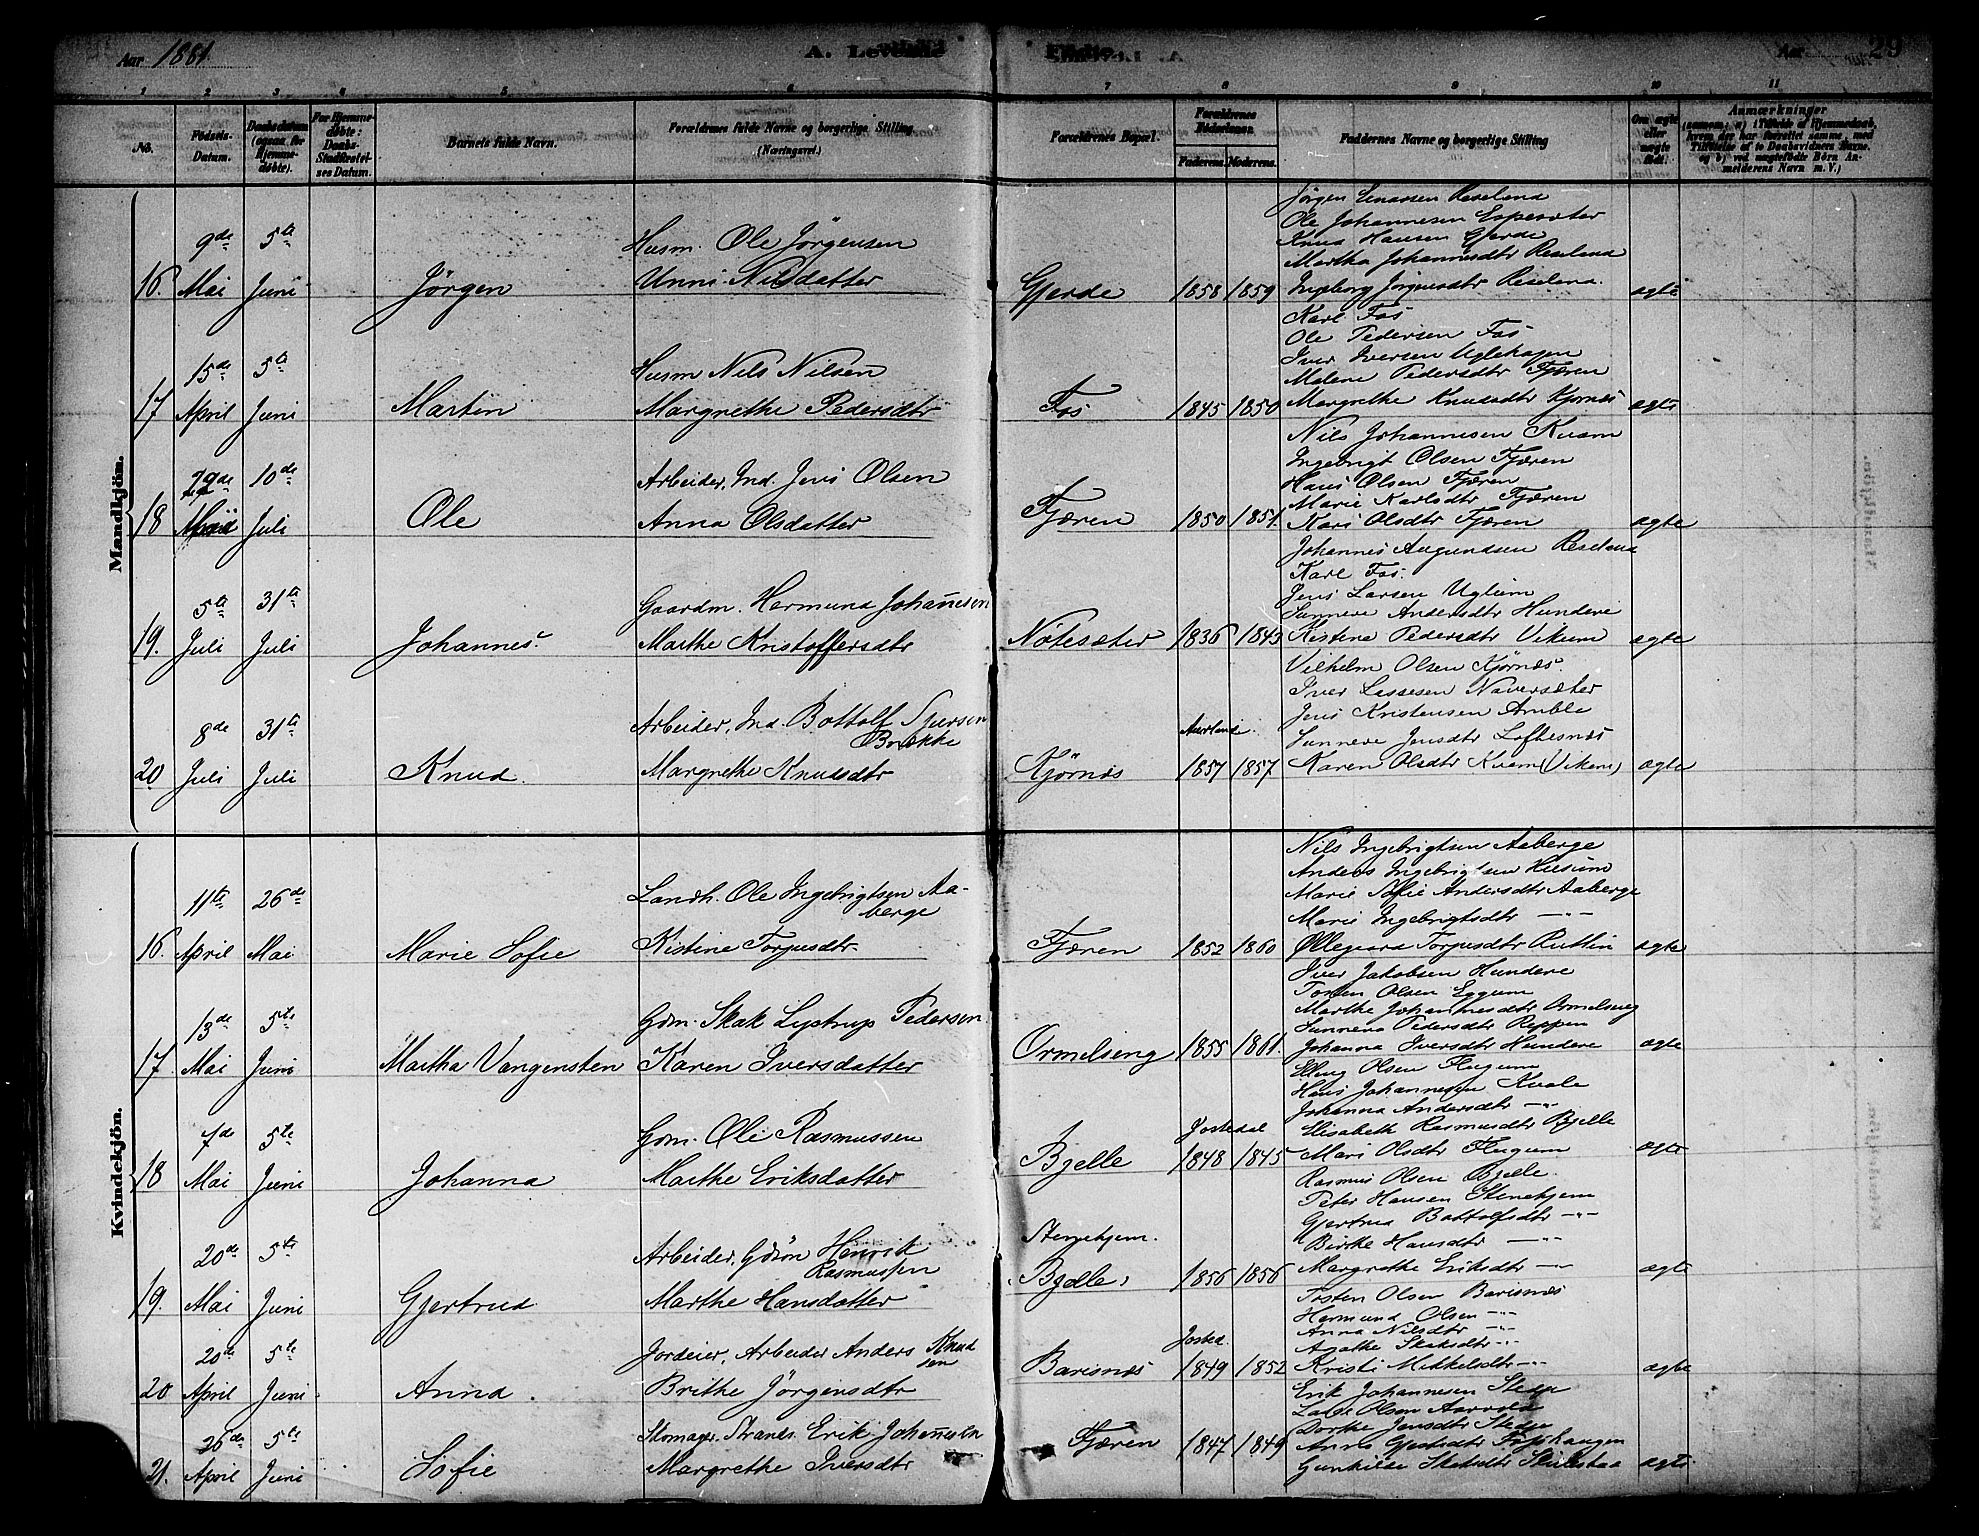 Aar 1881.
A. Levende
Fødte.
Aar
29
1 2 3 4 5 6 7 8 9 10 11
No.
Fødsels-Datum.
Daabsdatum (ogsaa for Hjemmedøbte).
For Hjemmedøbte: Daabs-Stadfæstelses Datum.
Barnets fulde Navn.
Forældrenes fulde Navne og borgerlige Stilling (Næringsvei.)
Forældrenes Bopæl.
Forældrenes Fødselsaar.
Faderens. Moderens.
Faddernes Navne og borgerlige Stilling
Om ægte eller uægte født.
Anmærkninger
Mandkjön.
16. 9de Mai 5te Juni Jørgen
Husm. Ole Jörgensen
Unni Nilsdatter
Gjerde 1858 1859
Jörgen Enassen Reseland
Ole Johannesen Espesæter
Knud Hansen Gjerde
Martha Johannesdtr Reseland
Ingeborg Jörgensdtr Reseland.
ægte
17 15de April 5te Juni Martin
Husm Nils Nilsen
Margrethe Pedersdtr
Fos 1845 1850
Karl Fos
Ole Pedersen Fos
Iver Iversen Uglehagen
Malene Pedersdtr Fjæren
Margrethe Knudsdtr Kjörnæs
ægte
18 29de Mai 10de Juli Ole
Arbeider, Ind. Jens Olsen
Anna Olsdatter
Fjæren 1850 1851.
Nils Johannesen Kvam
Ingebrigt Olsen Fjæren
Hans Olsen Fjæren
Marie Karlsdtr Fjæren
Kari Olsdtr Fjæren
ægte
19. 5te Juli 31te Juli Johannes.
Gaardm. Hermund Johannesen
Marthe Kristoffersdtr
Notesæter 1836 1843
Johannes Augundsen Reseland
Karl Fos.
Jens Larsen Uglum
Sunneve Andersdtr Hundere
Kistine Pedersdtr Vikum
ægte
20 8de Juli 31te Juli Knud.
Arbeider, Ind. Bottolf Sjursen
Brække
Margrethe Knudsdtr
Kjörnæs
Aurland.
1857 1857
Vilhelm Olsen Kjörnæs.
Iver Lassesen Naversæter
Jens Kristensen Amble
Sunneve Jensdtr Loftesnæs
Karen Olsdtr Kvam (Vikum)
ægte
Kvindekjön.
16. 11te April 26de Mai Marie Sofie
Landh. Ole Ingebrigtsen Aa-
berge
Kistine Torgusdtr
Fjæren 1852 1860
Nils Ingebrigtsen Aaberge
Anders Ingebrigtsen Husum
Marie Sofie Andersdtr Aaberge
Marie Ingebrigtsdtr —"—
Øllegaard Torgusdtr Ruttlin
ægte
17. 13de Mai 5te Juni Martha Vangensten
Gdm. Skak Lystrup Pedersen
Karen Iversdatter
Ormelseng 1855 1861.
Iver Jakobsen Hundere
Tosten Olsen Eggum
Marthe Johannesdtr Ormelseng
Sunneva Pedersdtr Reppen
Johanna Iversdtr Hundere
ægte
18 7de Mai 5te Juni Johanna
Gdm. Ole Rasmussen
Marthe Eriksdatter
Bjelle
Jostedal
1848 1845
Elling Olsen Flugum
Hans Johannesen Kvale
Johanna Andersdtr —"—
Elisabeth Rasmusdtr Bjelle
Mari Olsdtr Flugum
ægte
19. 20de Mai 5te Juni Gjertrud
Arbeider, Gdsön Henrik
Rasmussen
Marthe Hansdatter
Stenehjem.
Bjelle, 1856 1856
Rasmus Olsen Bjelle.
Peter Hansen Stenehjem
Gjertrud Bottolfsdtr —"—
Birthe Hansdtr —"—
Margrethe Eriksdtr —"—
ægte
20 20de April 5te Juni Anna.
Jordeier, Arbeider Anders Knud
sen
Brithe Jörgensdtr
Barsnæs
Josted.
1849 1852
Tosten Olsen Barsnæs
Hermund Olsen —"—
Anna Nilsdtr —"—
Agathe Skaksdtr —"—
Kristi Mikkelsdtr —"—
ægte
21. 26de April 5te Juni Sofie
Skomager, Strands. Erik Johannesen
Margrethe Iversdtr
Fjæren 1847 1849
Erik Johannesen Stedje
Lasse Olsen Aarvold
Dorthe Jensdtr Stedje
Gunhilde Skaksdtr
ægte